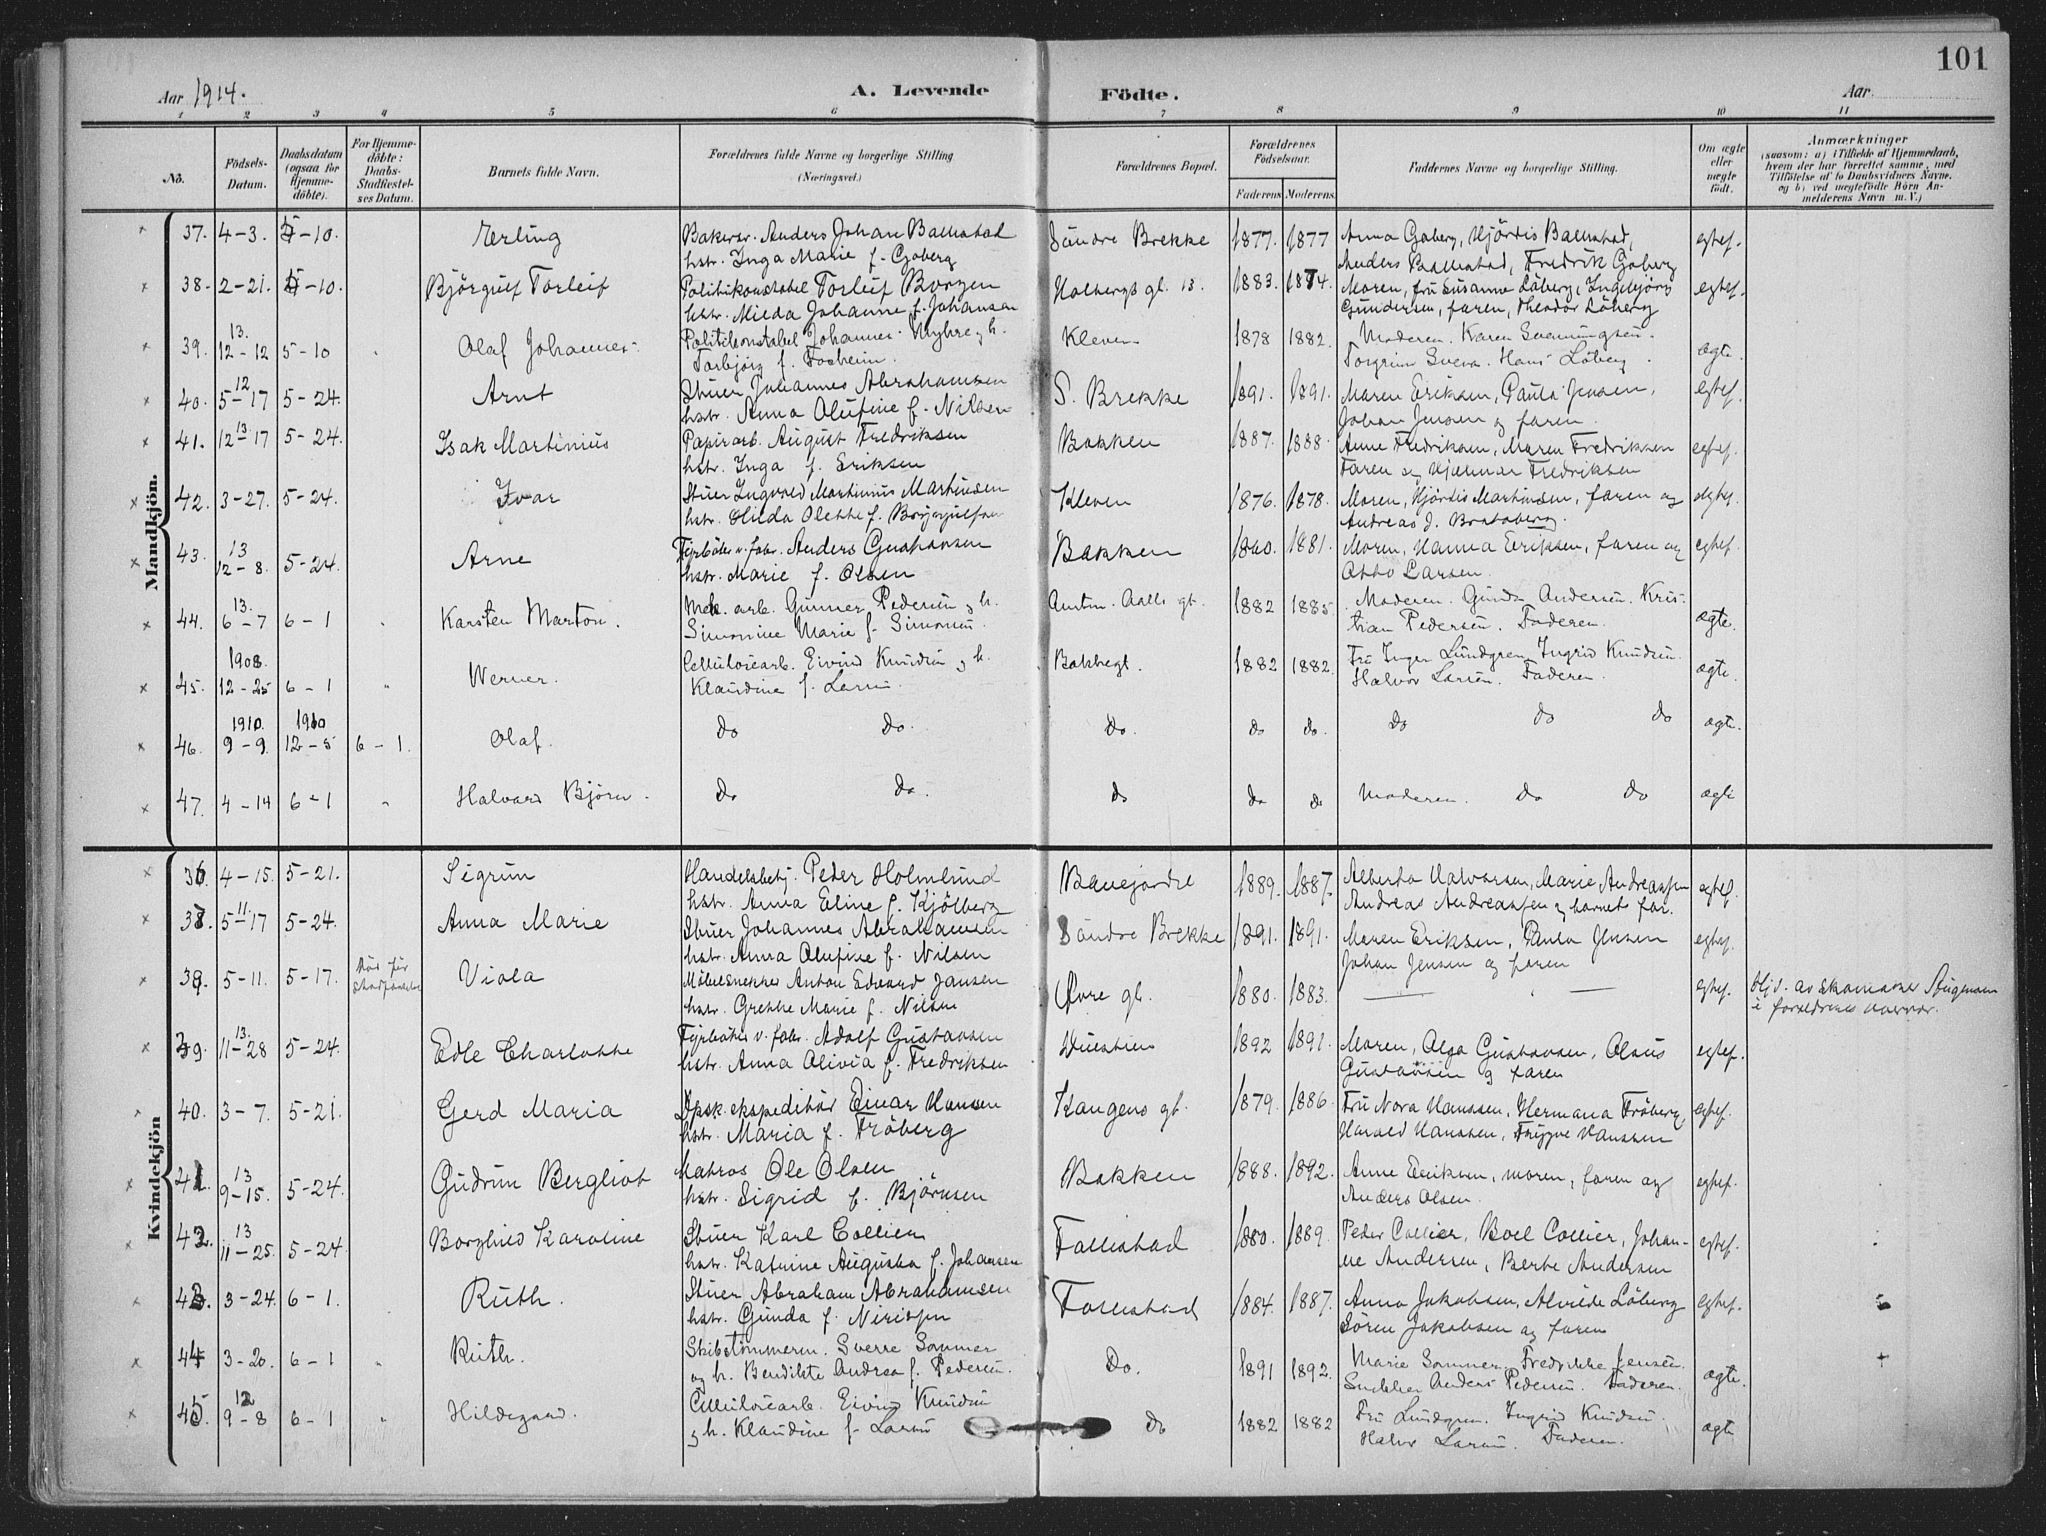 101
Aar 1914.
A. Levende Födte.
Aar
1 2 3 4 5 6 7 8 9 10 11
No.
Födsels-Datum.
Daabsdatum (ogsaa for Hjemmedöbte).
For Hjemmedöbte: Daabs-Stadfæstelses Datum.
Barnets fulde Navn.
Forældrenes fulde Navne og borgerlige Stilling (Næringsvei.)
Forældrenes Bopæl.
Forældrenes Födselsaar.
Faderens. Moderens.
Faddernes Navne og borgerlige Stilling.
Om ægte eller uægte födt.
Anmærkninger
(saasom: a) i Tilfælde af Hjemmedaab,
hvem der har forrettet samme, med
Tilföielse af to Daabsvidners Navne,
og b) ved uægtefödte Börn An-
melderens Navn m. V.)
Mandkjön.
37. 4-3. 5-10. Erling
Bakersv. Anders Johan Ballestad
hstr. Inga Marie f. Goberg
Söndre Brekke 1877. 1877
Anna Goberg, Hjördis Ballestad,
Anders Ballestad, Fredrik Goberg
egtef.
38. 2-21. 5-10. Björgulf Torleif
Politikonstabel Torleif Borgen
hstr. Milda Johanne f. Johansen
Holbergs gt. 13. 1883. 1874.
Moren, fru Susanne Löberg, Ingebjörg
Gundersen, faren, Theodor Löberg
egtef.
39. 13. 12-12 5-10 Olaf Johannes.
Politikonstabel Johannes Myhre og h.
Torbjörg f. Fosheim.
Kleven 1878 1882.
Moderen. Karen Svenningsen.
Torgrim Sveva. Hans Löberg.
ægte.
40. 12 5-17 5-24. Arnt
Stuer Johannes Abrahamsen
hstr. Anna Olufine f. Nilsen
S. Brekke 1891. 1891.
Maren Eriksen, Paula Jensen,
Johan Jensen og faren.
egtef.
41. 13 12-17 5-24. Isak Martinius
Papirarb. August Fredriksen
hstr. Inga f. Eriksen
Bakken 1887. 1888.
Anne Fredriksen, Maren Fredriksen
Faren og Hjalmar Fredriksen
egtef.
42. 3-27. 5-24. Ivar
Stuer Ingvald Martinius Martinsen
hstr. Hilda Olette f.
Kleven 1876. 1878.
Moren, Hjördis Martinsen, faren og
Andreas J. Bratsberg.
egtef.
43. 13 12-8. 5-24. Arne
Fyrböter v. fabr. Anders Gustavsen
hstr. Marie f. Olsen
Bakken 1880. 1881.
Moren, Hanna Eriksen, faren og
Otto Larsen.
egtef.
44. 13. 6-7 6-1 Karsten Marton.
Mek. arb. Gunner Pedersen og h.
Simonine Marie f. Simonsen.
Anton. Aalls gt. 1882 1885.
Moderen. Gunda Andersen. Kris-
tian Pedersen. Faderen.
ægte.
45. 1908. 12-25 6-1 Werner.
Cellulosearb. Eivind Knudsen og h.
Klaudine f. Larsen.
Bakkegt. 1882 1882.
Fru Inger Lundgren Ingrid Knudsen.
Halvor Larsen. Faderen.
ægte.
46. 1910. 9-9. 1910 12-5 6-1. Olaf.
Do Do. Do. Do Do. Do Do Do ægte.
47. 4-14 6-1 Halvard Björn.
Do Do. Do Do Do Moderen. Do Do ægte
Kvindekjön
36. 4-15. 5-21. Sigrun
Handelsbetj. Peder Holmlund
hstr. Anna Eline f. Kjölberg
Banejordet 1889. 1887.
Alberta Halvorsen, Marie Andreassen
Andreas Andreassen og barnets far.
egtef.
37. 11. 5-17 5-24. Anna Marie
Stuer Johannes Abrahamsen
hstr. Anna Olufine f. Nilsen
Söndre Brekke 1891. 1891.
Maren Eriksen, Paula Jensen
Johan Jensen og faren
egtef.
39. 5-11. 5-17. Död för Viola
Möbelsnekker Anton Edvard Jansen
hstr. Grethe Marie f. Nilsen
Övre gt. 1880. 1883.
egtef.
Hjd. av
i foreldrenes nærvær.
39. 13. 11-28 5-24. Edle Charlotte
Fyrböter v. fabr. Adolf Gustavsen
hstr. Anna Olivia f. Fredriksen
1892 1891.
Moren, Olga Gustavsen, Olaus
Gustavsen og faren
egtef.
40. 3-7. 5-21. Gerd Maria
Dpsk. ekspeditör Einar Hansen
hstr. Maria f. Fröberg
Kongens gt. 1879. 1886.
Fru Nora Hanssen, Hermana Fröberg,
Harald Hanssen, Trygve Hanssen
egtef.
41. 13 9-15. 5-24. Gudrun Bergliot
Matros Ole Olsen
hstr. Sigrid f. Björnsen
Bakken 1888. 1892.
Anne Eriksen, moren, faren og
Anders Olsen.
egtef.
42. 13 11-25. 5-24. Borghild Karoline
Stuer Karl Collier
hstr. Katrine Augusta f. Johansen
Follestad 1880. 1889.
Peder Collier, Boel Collier, Johan-
ne Andersen, Berte Andersen
egtef.
43. 3-24. 6-1. Ruth.
Stuer Abraham Abrahamsen
hstr. Gunda f. Nirissen
Follestad 1884. 1887.
Anna Jakobsen, Alvilde Löberg
Sören Jakobsen og faren
egtef.
44 3-20. 6-1 Ruth.
Skibstömmerm. Sverre Sommer
og h. Bendikte Andrea f. Pedersen.
Do. 1891 1892.
Marie Sommer. Fredrikke Jensen.
Snekker Anders Pedersen. Faderen.
ægte.
45. 12 9-8 6-1 Hildegard.
Cellulosearb. Eivind Knudsen
og h. Klaudine f. Larsen
Do 1882 1882
Fru Lundgren. Ingrid Knudsen.
Halvor Larsen. Faderen.
ægte